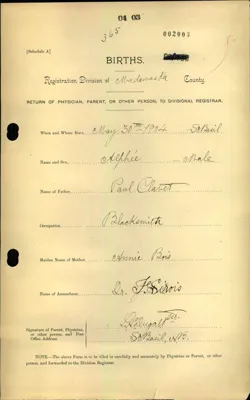 04 03
365
002003
[Schedule A]
BIRTHS.
Registration Division of Madawaska County.
RETURN OF PHYSICIAN, PARENT, OR OTHER PERSON, TO DIVISIONAL REGISTRAR.
When and Where Born, May 30th 1904 St Basil
Name and Sex, Alphée Male
Name of Father, Paul Clavet
Occupation, Blacksmith
Maiden Name of Mother, Annie Bois
Name of Accoucheur, Dr.
Signature of Parent, Physician,
or other person, and Post
Office Address St Basil, NB.
NOTE.—The above Form is to be filled in carefully and accurately by Physician or Parent, or other
person, and forwarded to the Division Registrar.